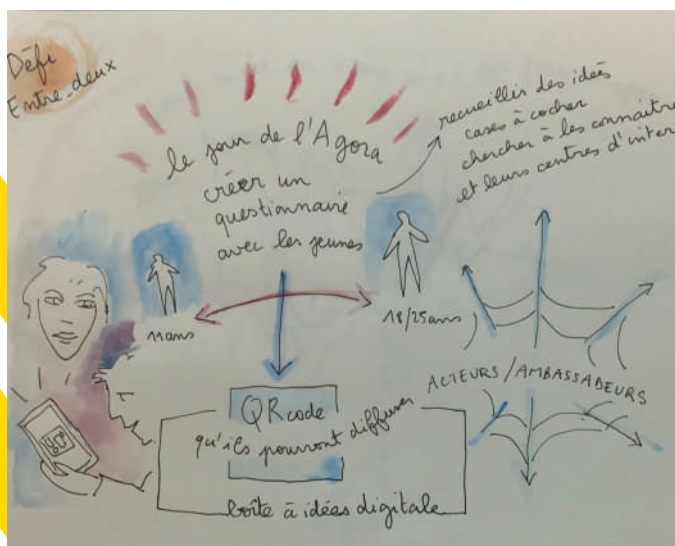 Défi
Entre-deux
le jour de l'Agora
créer un
questionnaire
avec les jeunes
recueillir des idées
cases à cocher
chercher à les connaitre
et leurs centres d'inter
11 ans
18/25 ans
ACTEURS/AMBASSADEURS
QR code
qu'ils pourront diffuser
boîte à idées digitale